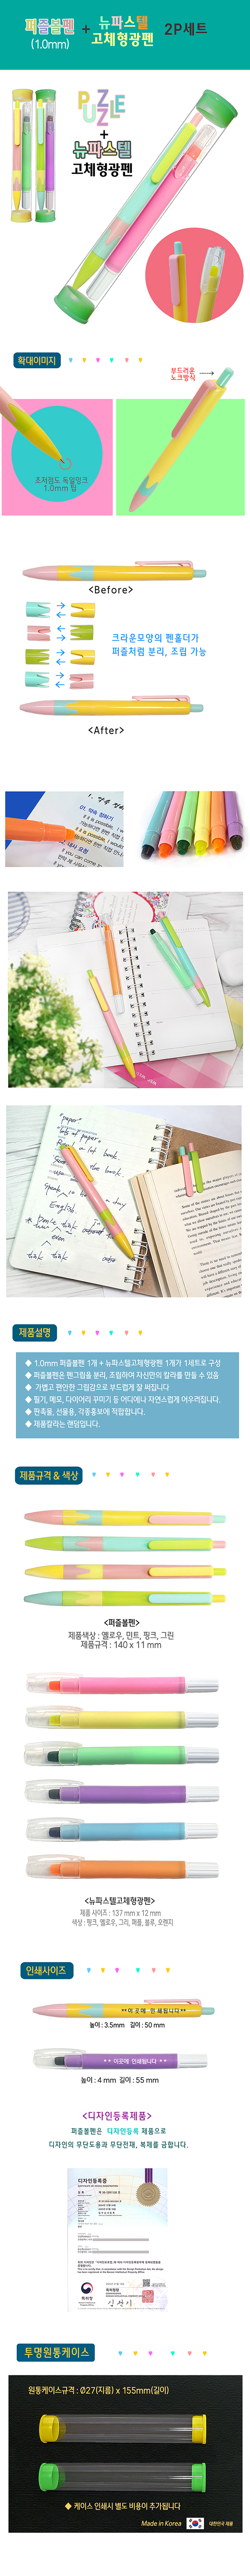 퍼즐볼펜
(1.0mm)
+
뉴파스텔
고체형광펜
2P세트
PUZZLE
+
뉴파스텔
고체형광펜
확대이미지
부드러운
노크방식
초저점도 독일잉크
1.0mm 팁
<Before>
크라운모양의 펜홀더가
퍼즐처럼 분리, 조립 가능
<After>
제품설명
◆ 1.0mm 퍼즐볼펜 1개 + 뉴파스텔고체형광펜 1개가 1세트로 구성
◆ 퍼즐볼펜은 펜그립을 분리, 조립하여 자신만의 칼라를 만들 수 있음
◆ 가볍고 편안한 그립감으로 부드럽게 잘 써집니다
◆ 필기, 메모, 다이어리 꾸미기 등 어디에나 자연스럽게 어우러집니다.
◆ 판촉물, 선물용, 각종홍보에 적합합니다.
◆ 제품칼라는 랜덤입니다.
제품규격 & 색상
<퍼즐볼펜>
제품색상 : 옐로우, 민트, 핑크, 그린
제품규격 : 140 x 11 mm
<뉴파스텔고체형광펜>
제품 사이즈 : 137 mm x 12 mm
색상 : 핑크, 옐로우, 그리, 퍼플, 블루, 오렌지
인쇄사이즈
**이곳에 인쇄됩니다**
높이 : 3.5mm 길이 : 50 mm
** 이곳에 인쇄됩니다 **
높이 : 4 mm 길이 : 55 mm
<디자인등록제품>
퍼즐볼펜은 디자인등록 제품으로
디자인의 무단도용과 무단전재, 복제를 금합니다.
디자인등록증
특허청
투명원통케이스
원통케이스규격 : Ø27(지름) x 155mm(길이)
◆ 케이스 인쇄시 별도 비용이 추가됩니다
Made in Korea
대한민국 제품